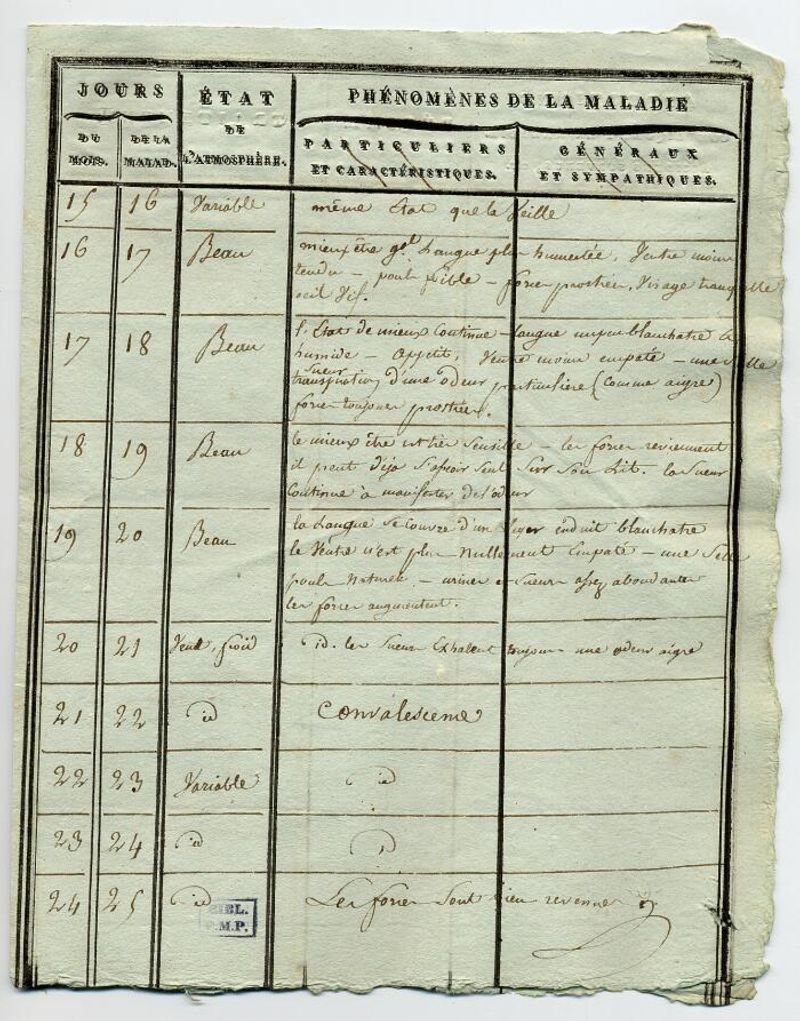 JOURS
ÉTAT
DE
L'ATMOSPHÈRE.
PHÉNOMÈNES DE LA MALADIE
DU
MOIS.
DE LA
MALAD.
PARTICULIERS
ET CARACTÉRISTIQUES.
GÉNÉRAUX
ET SYMPATHIQUES.
15 16 Variable même Etat que la Veille
16 17 Beau mieux être gēl Langue plus humectée, Ventre moins
tendu – pouls foible – forces prostrées, Visage tranquille
oeil Vif.
17 18 Beau l'Etat de mieux Continue – Langue un peu blanchatre &
humide – appetit, Ventre moins empaté – une selle
Sueur
transpiration d'une odeur particulière (Comme aigre)
forces toujours prostrées.
18 19 Beau le mieux être est très Sensible – les forces reviennent
il peut déja S'assoir Seul Sur Son Lit. la Sueur
Continue à manifester de l'odeur
19 20 Beau la Langue Se Couvre d'un Leger enduit blanchatre
le Ventre n'est plus Nullement Empaté – une Selle
pouls Naturel – urines et Sueurs assez abondantes
les forces augmentent.
20 21 Vent, froid id. les Sueurs Exhalent toujours une odeur aigre
21 22 id Convalescence
22 23 Variable id
23 24 id id
24 25 id Les forces Sont bien revenues
BIBL.
P.M.P.